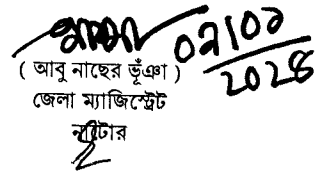 ০২/০১
২০২৪
( আবু নাছের ভূঁঞা )
জেলা ম্যাজিস্ট্রেট
নাটোর